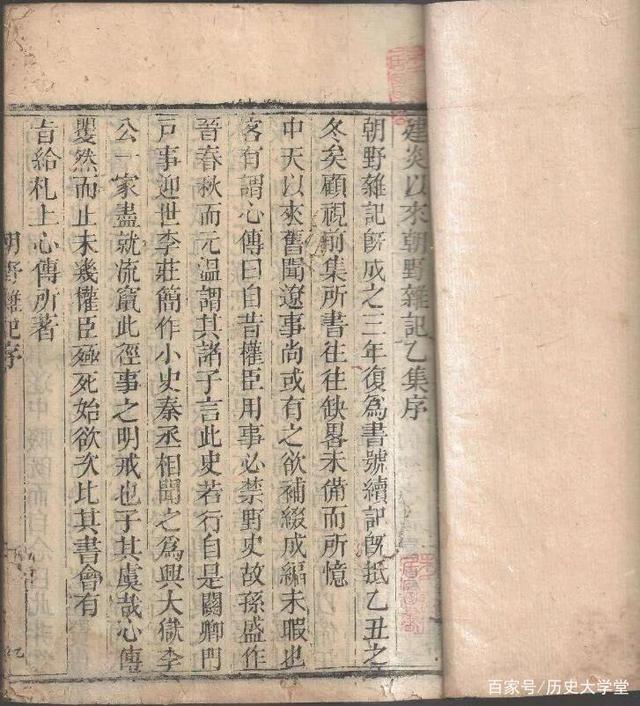 建炎以來朝野雜記乙集序
朝野雜記既成之三年復為書號續記既抵乙丑之
冬矣顧視前集所書往往缺畧未備而所憶
中天以來舊聞遼事尚或有之欲補綴成編未暇也
客有謂心傳曰自昔權臣用事必禁野史故孫盛作
晉春秋而元溫謂其諸子言此史若行自是關卿門
戶事迎世李莊簡作小史秦丞相聞之為興大獄李
公一家盡就流竄此徑事之明戒也子其虞哉心傳
矍然而止未幾權臣殛死始欲次比其書會有
旨給札上心傳所著
朝野雜記序
百家号/历史大学堂